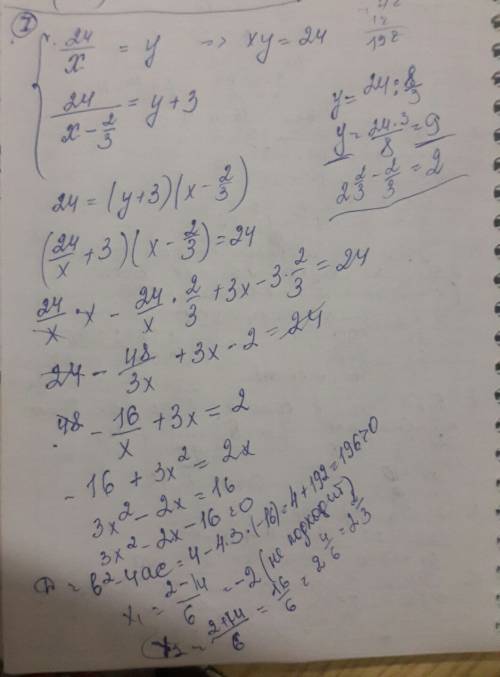 1
24/x = y => xy = 24
192
24/(x - 2/3) = y + 3
y = 24 : 8/3
y = 24·3/8 = 9
2 2/3 - 2/3 = 2
24 = (y+3)(x - 2/3)
(24/x + 3)(x - 2/3) = 24
24/x · x - 24/x · 2/3 + 3x - 3·2/3 = 24
24 - 48/3x + 3x - 2 = 24
- 16/x + 3x = 2
- 16 + 3x² = 2x
3x² - 2x = 16
3x² - 2x - 16 = 0
D = b² - 4ac = 4 - 4·3·(-16) = 4 + 192 = 196 > 0
x₁ = (2 - 14)/6 = -2 (не подходит)
x₂ = (2+14)/6 = 16/6 = 2 4/6 = 2 2/3